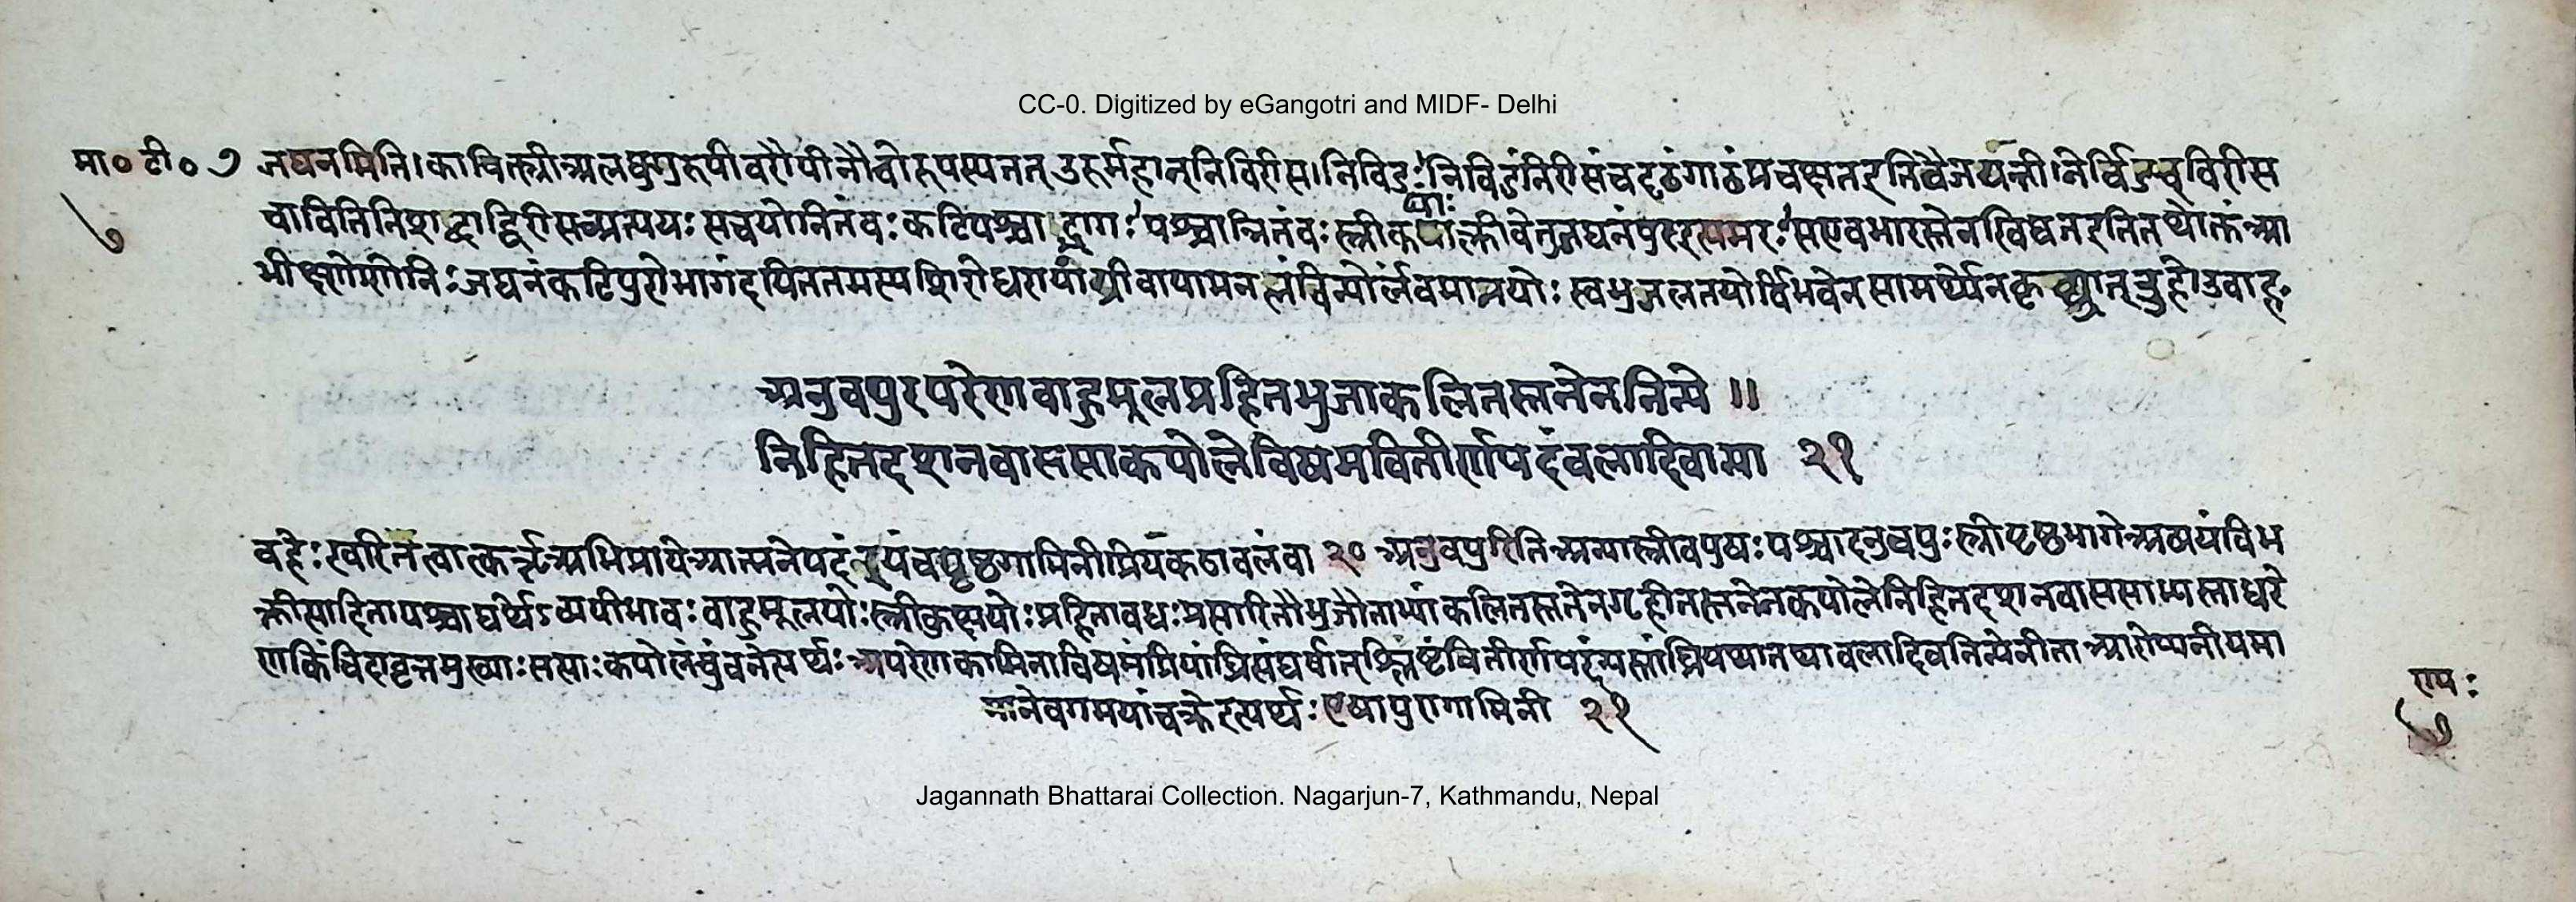 CC-0. Digitized by eGangotri and MIDF- Delhi
मा० टी० ७ जघनमिति।काचित्स्त्रीअलघुगुरुपीवरौपीनौचोरूयस्यतत् उरुर्महान्निविरीस।निविडः'निविडंनिरीसंचदृढंगाढंप्रचक्षतइतिवैजयन्ती।नेर्विडच्विरीस
७ चावितिनिशब्दाद्विरीसच्प्रत्ययः सचयोनितंवः कटिपश्चाद्भागः'पश्चान्नितंवः स्त्रीकट्याःक्लीवेतुजघनंपुरइत्यमरः'सएवभारस्तेनखिद्यतइतितथोक्तंआ
भीक्ष्ण्येणिनिःजघनंकटिपुरोभागंदयिततमस्यशिरोधरायांग्रीवायामनलंविन्योर्लंवमानयोः स्वभुजलतयोर्विभवेनसामर्थ्येनकृच्छ्रात् दुहोउवाह
अनुवपुरपरेणवाहुमूलप्रहितभुजाकलितस्तनेननिन्ये ॥
निहितदशनवाससाकपोलेविषमवितीर्णपदंवलादिवान्या २१
वहेः स्वरितत्वात्कर्त्रअभिप्रायेआत्मनेपदंइयंचपृष्ठगामिनीप्रियकंठावलंवा २० अनुवपुरितिअन्यास्त्रीवपुषः पश्चादनुवपुः स्त्रीपृष्ठभागेअव्ययंविभ
क्तीत्यादिनापश्चाद्यर्थेऽव्ययीभावः वाहुमूलयोः स्त्रीकुक्षयोः प्रहितावधः प्रसारितौभुजौताभ्यांकलितस्तनेनगृहीतस्तनेनकपोलेनिहितदशनवाससान्यस्ताधरे
णकिंचिदावृत्तमुख्याः सत्याः कपोलंचुंवतेत्यर्थः अपरेणकामिनाविषमंप्रियांघ्रिसंघर्षात्श्लिष्टंवितीर्णपदंन्यस्तांघ्रियथातथावलादिवनिन्येनीताआरोप्यनीयमा
नानेवगमयांचक्रेइत्यर्थः एषापुरोगामिनी २१
एमः
७
Jagannath Bhattarai Collection. Nagarjun-7, Kathmandu, Nepal